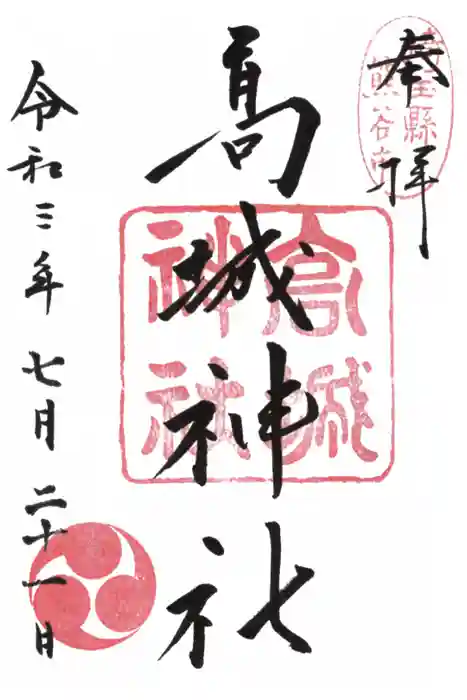 奉拝
埼玉縣
熊谷市
髙城神社
高城
神社
令和三年七月二十一日